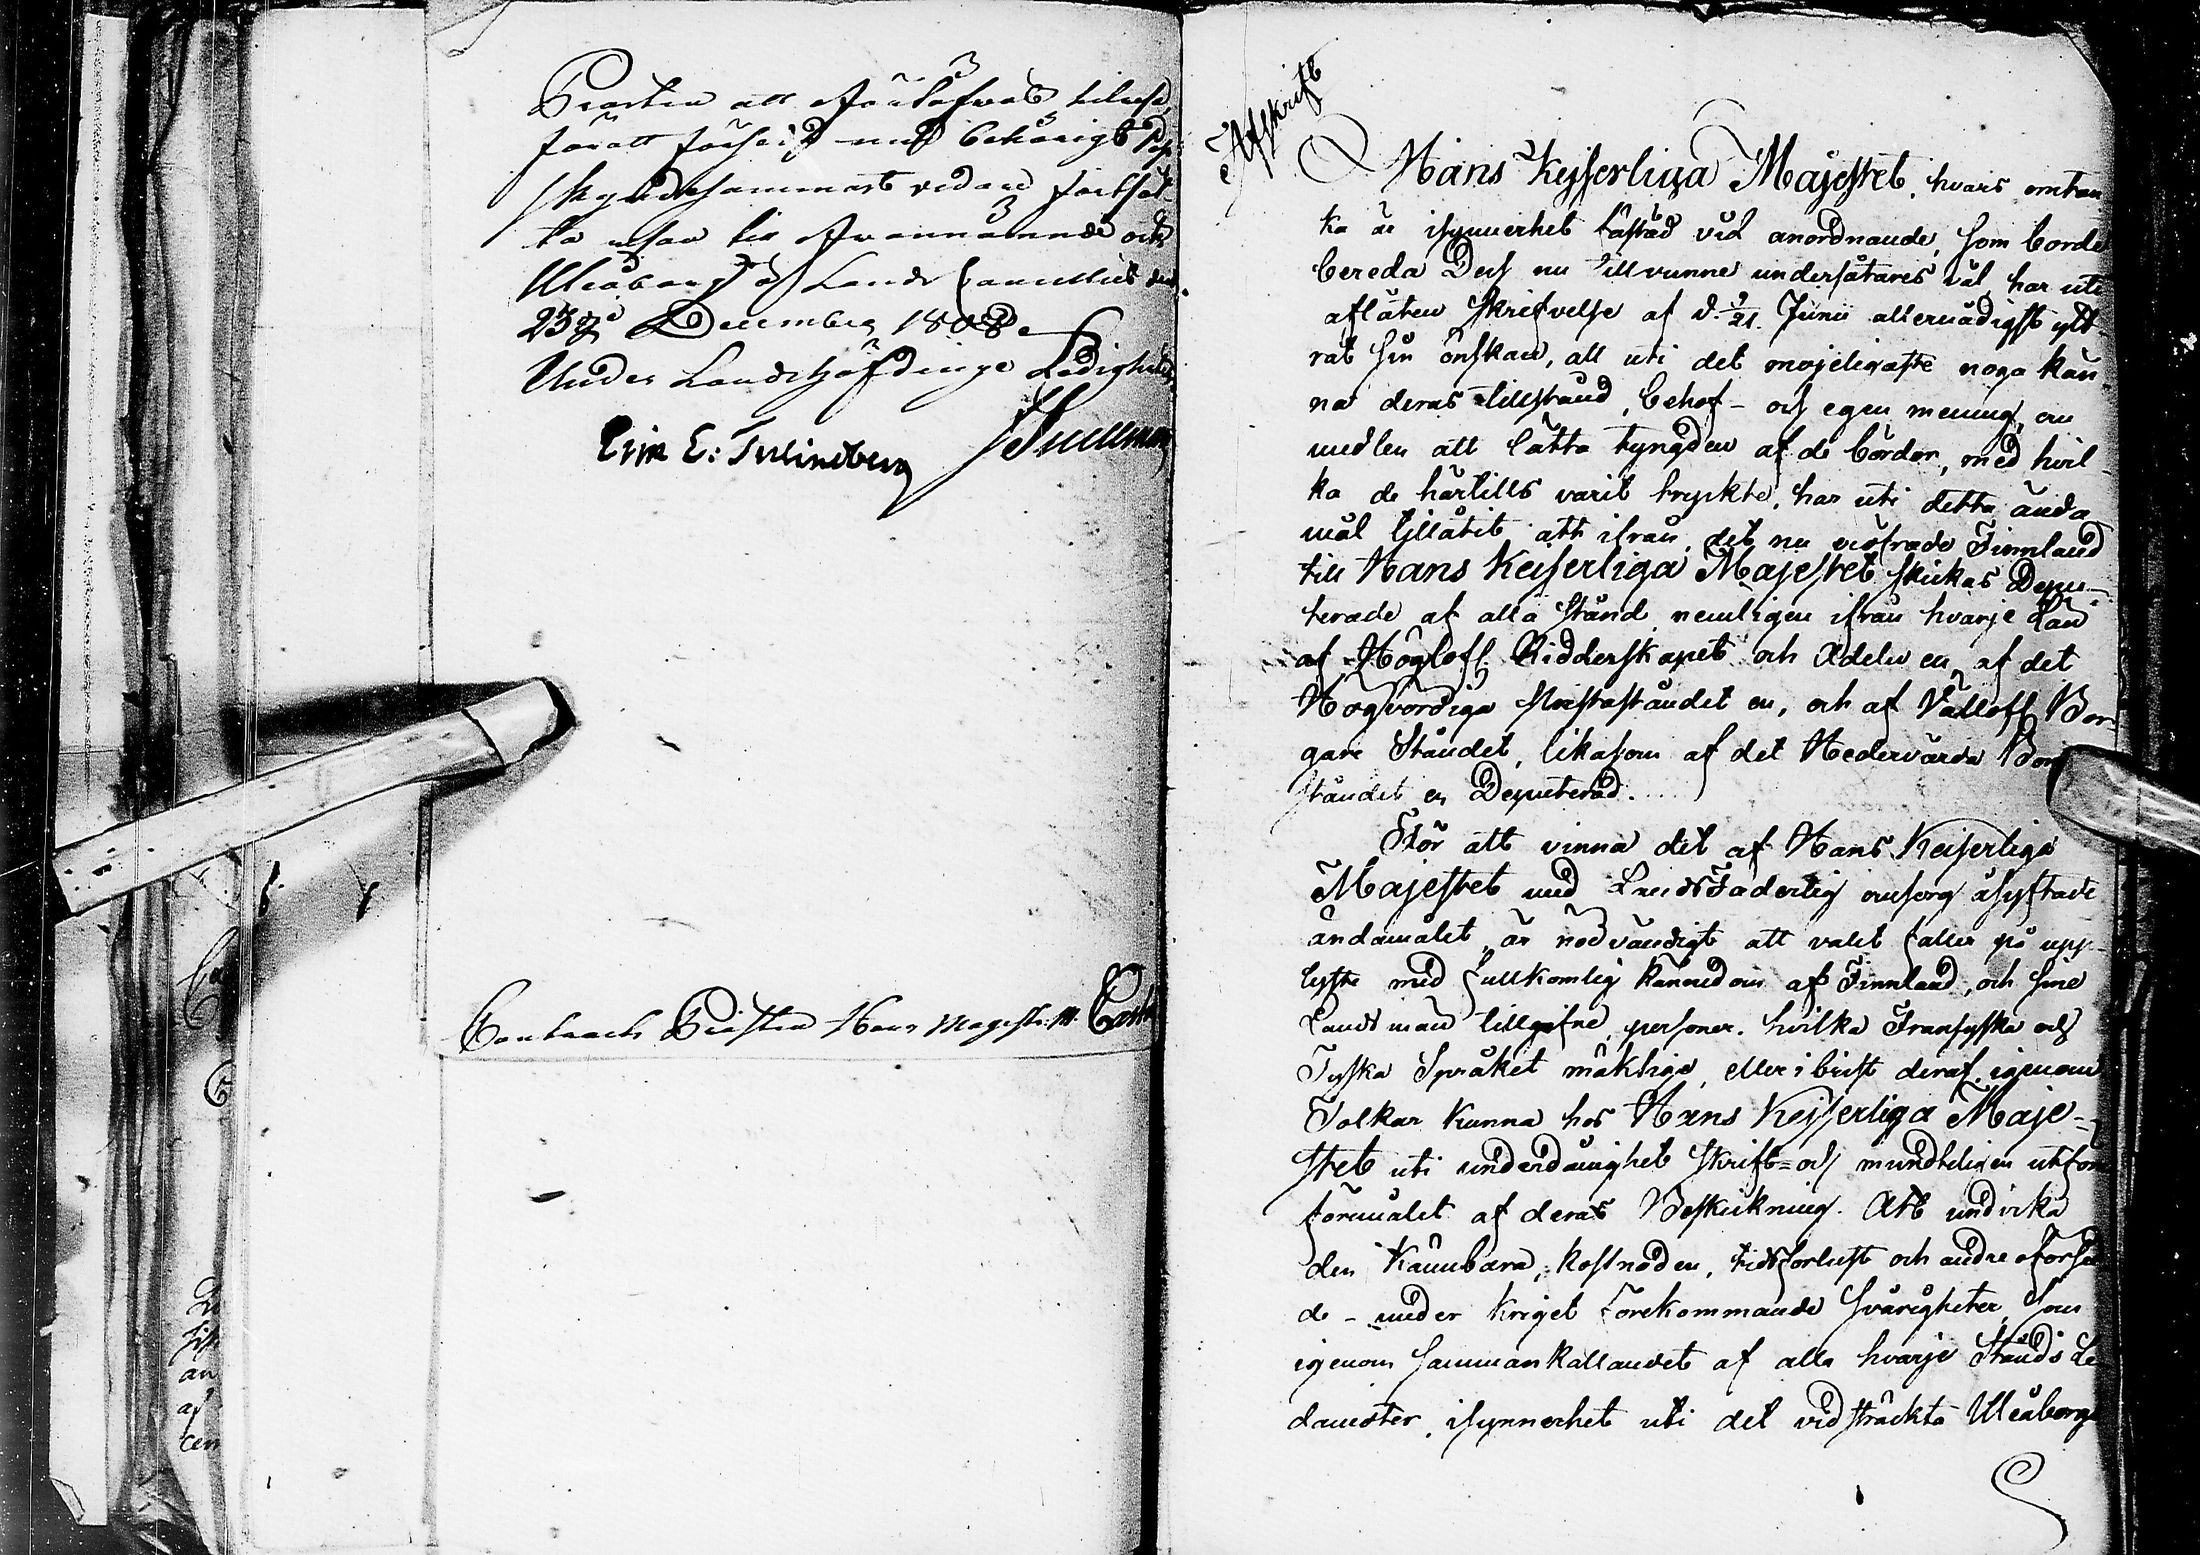 Prosten att
föratt förse med behörigt
skyndesammast vidare fortskaf-
ta
Uleåborg Lands Cancelliet den
23 December 1808
Under Landshöfdinge Ledigheten
Eric E: Tulindberg
Contracts Prosten Herr Magist: M:
Afskrift
Hans Kejserliga Majestet, hvars omtan
ka är isynnerhet fästad vid anordnande, som borde
bereda Dess nu tillvunne undersåtares väl, har uti
aflåten Skrifvelse af d. 9/21. Junii allernådigst ytt-
rat sin önskan, att uti det möjeligaste noga kän-
na deras tillstånd, behof - och egen mening, om
medlen att lätta tyngden af de bördor, med hvil-
ka de härtills varit tryckte, har uti detta ända
mål tillåtit att ifrån det nu eröfrade Finnland
till Hans Keiserliga Majestet skickas Depu-
terade af alla Stånd nemligen ifrån hvarje Län
af Höglofl. Ridderskapet och Adeln en, af det
Högvördiga Prestaståndet en, och af Vällofl. Bor-
gare Ståndet, likasom af det Hedervärda Bon
Ståndet en Deputerad.
För att vinna det af Hans Keiserliga
Majestet med LandsFaderlig omsorg åsyftade
ändamålet, är nödvändigt att valet faller på upp-
lyste med fullkomlig kännedom af Finnland, och sine
Landsmän tillgifne personer. hvilka Fransyska och
Tyska Språket mäktige, eller i brist deraf, igenom
Tolkar kunna hos Hans Kejserliga Maje-
stet uti underdånighet Skrift= och mundteligen utföra
föremålet af deras Beskickning. Att undvika
den kännbara kostnaden, tidsförlust och andre
de - under kriget förekommande svårigheter, som
igenom sammankallandet af alla hvarje Stånds Le
damöter, isynnerhet uti det vidsträckta Uleåborgs